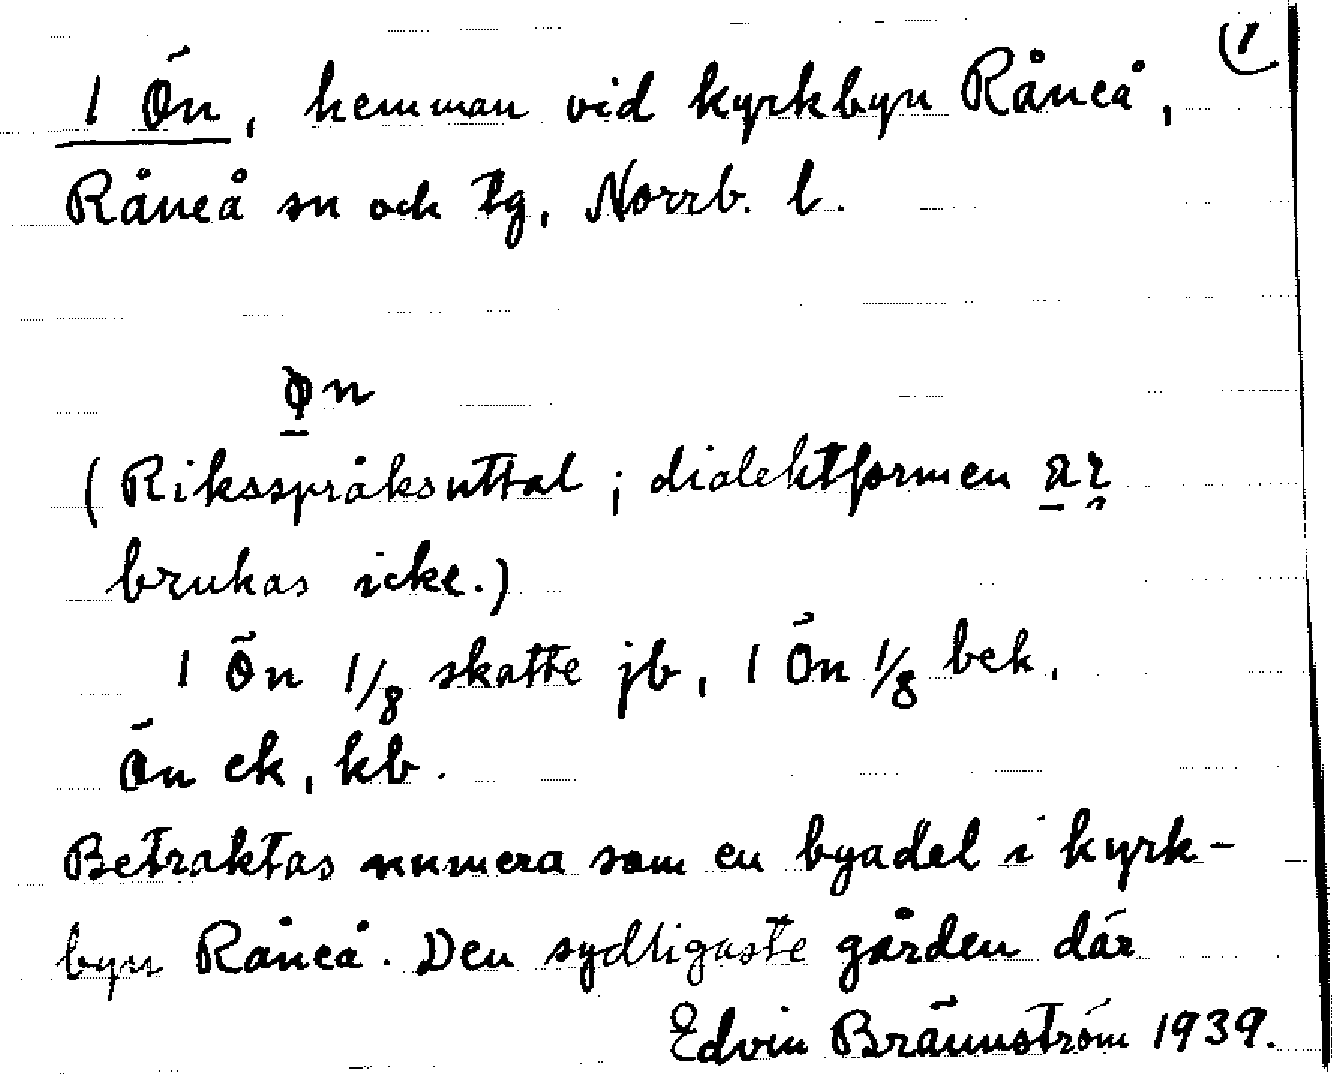 1
1 Ön, hemman vid kyrkbyn Råneå,
Råneå sn och tg, Norrb. l.
øn
(Riksspråksuttal; dialektformen
brukas icke.)
1 Ön 1/8 skatte jb, 1 Ön 1/8 bek.
Ön ek, kb.
Betraktas numera som en byadel i kyrk-
byn Råneå. Den sydligaste gården där
Edvin Brännström 1939.